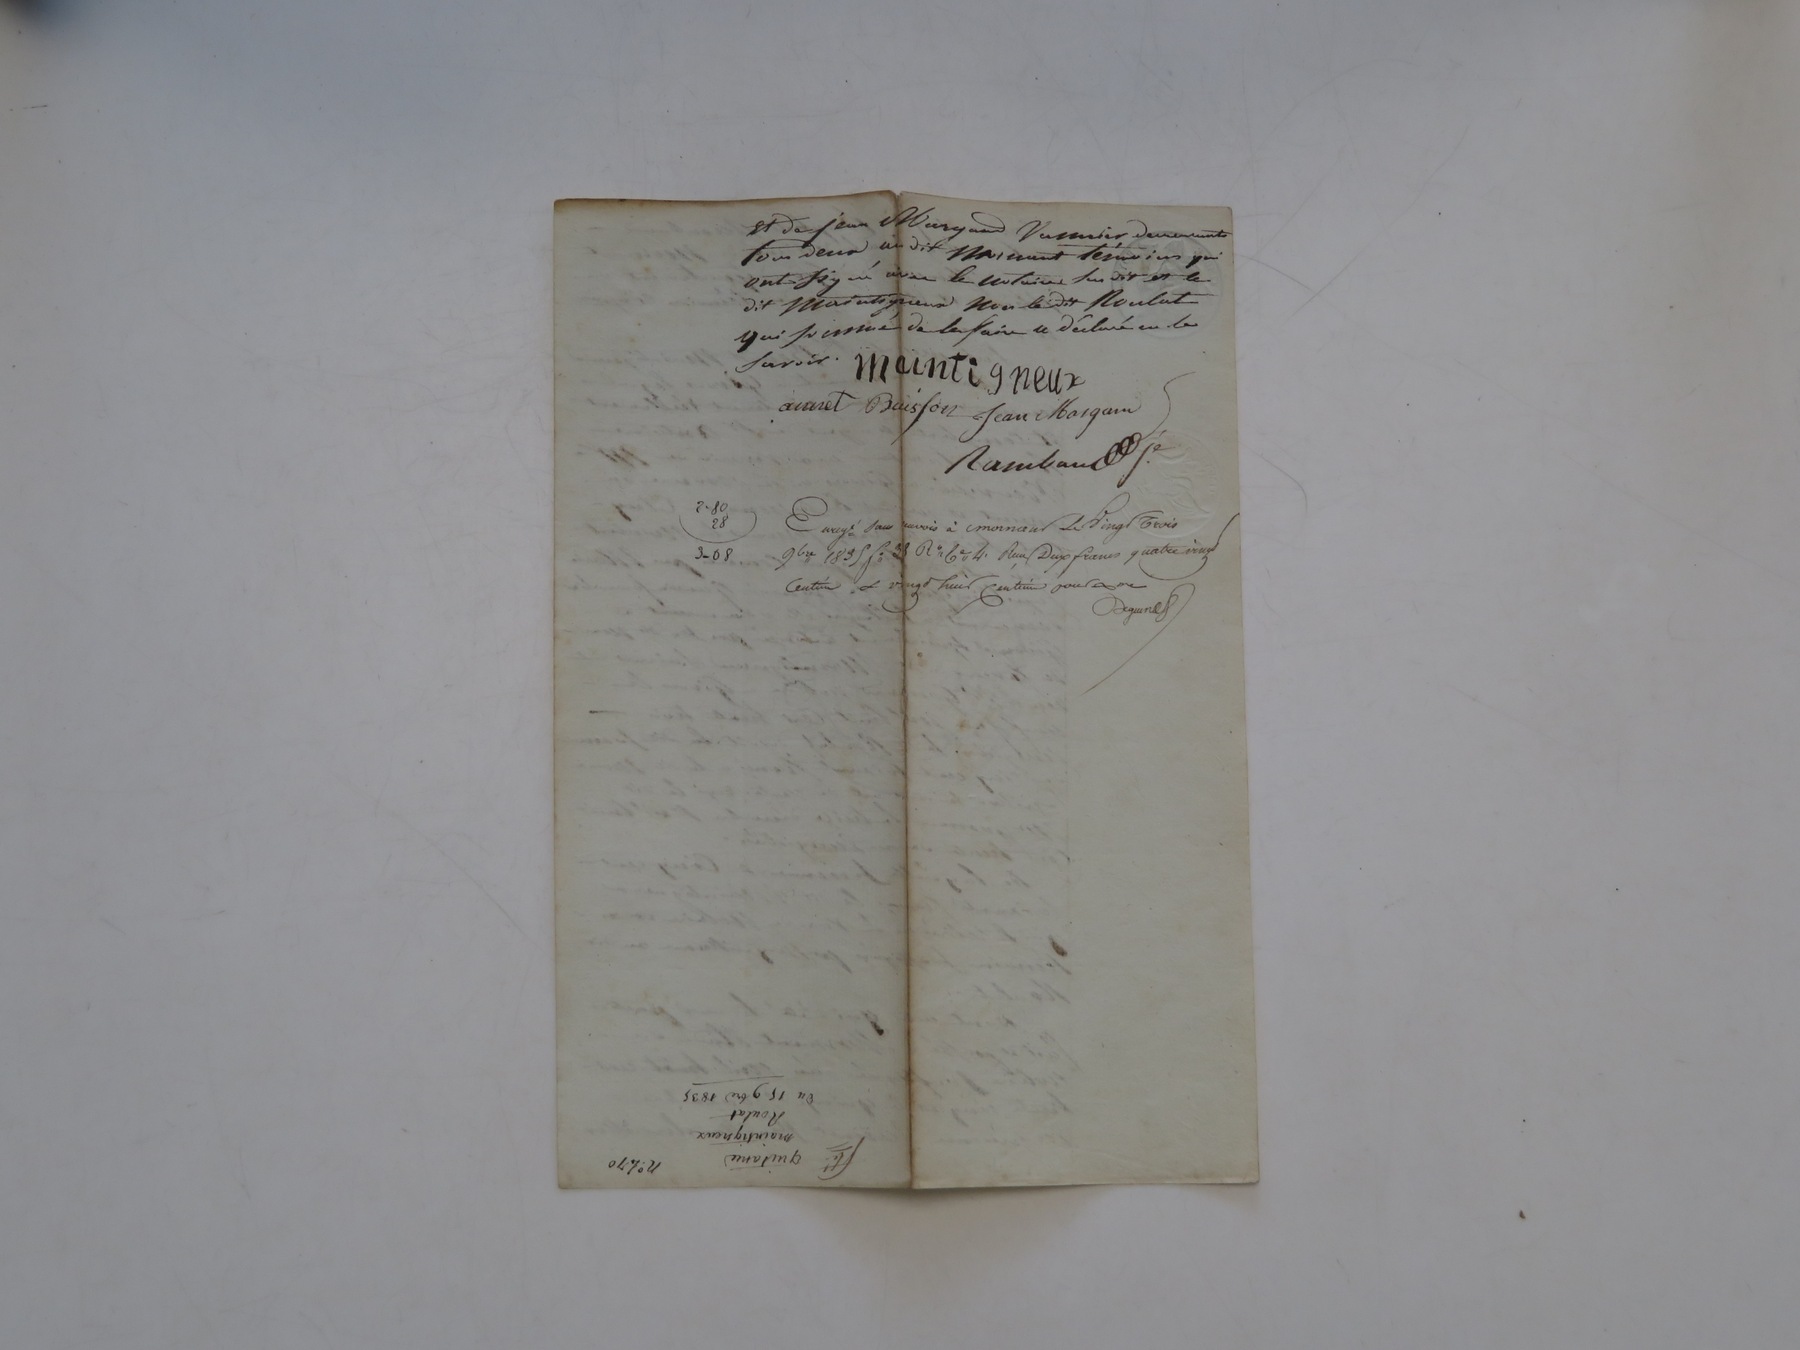 et de jean Margand Vannier demeurants
tous deux au dit Mornant témoins qui
ont signé avec le notaire sus dit et le
dit Maintigneux Non le dit Roulat
qui sommé de le faire a déclaré ne le
savoir.
Maintigneux
Buisson Jean Margand
Rambaud je
2-80
28
3-08
Enregé sans renvois à mornant Le Vingt Trois
9bre 1835 fo 38 Ro Reçu Deux francs quatre vingt
Centim & vingt huit Centim pour
Deguines
No 470
quitance
maintigneux
Roulat
Du 15 9bre 1835